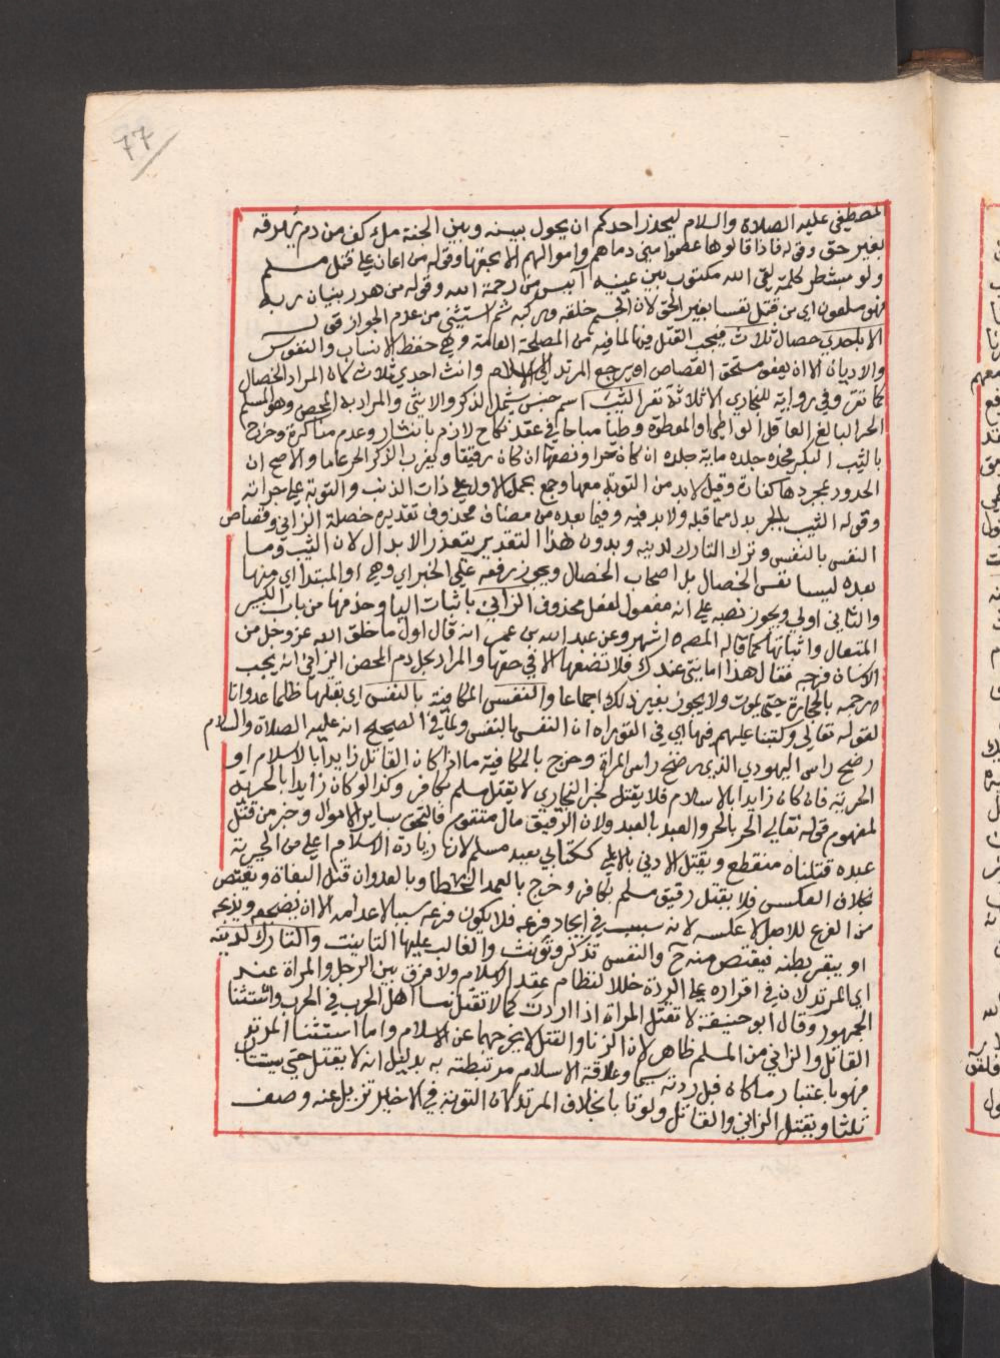 77
المصطفى عليه الصلاة والسلام ليحذر احدكم ان يحول بينه وبين الجنة ملء كف من دم يهرقه
بغير حق وقوله فاذا قالوها عصموا مني دماهم واموالهم الا بحقها وقوله من اعان على قتل مسلم
ولو بشطر كلمة لقي الله مكتوب بين عينيه آيس من رحمة الله وقوله من هدر بنيان ربه
فهو ملعون اي من قتل نفسا بغير الحق لان الجسم خلقه ومركبه ثم استثنى من عدم الجواز قوله
الا باحدي خصال ثلاث فيجب القتل فيها لما فيه من المصلحة العامة وهي حفظ الانساب والنفوس
والاديان الا ان يعفو مستحق القصاص او يرجع المرتد الى الاسلام وانث احدي ثلاث لان المراد الخصال
كما تقرر وفي رواية للبخاري الا ثلاثة نفر الثيب اسم جنس يشمل الذكر والانثى والمراد به المحصن وهو المسلم
الحر البالغ العاقل الواطي او الموطوة وطأ مباحا في عقد نكاح لازم بانتشار وعدم مناكرة وخرج
بالثيب البكر فحده جلده ماية جلدة ان كان حرا ونصفها ان كان رقيقا ويغرب الذكر الحر عاما والاصح ان
الحدود بمجردها كفارة وقيل لابد من التوبة معها وجمع بحمل الاول على ذات الذنب والتوبة على جراته
وقوله الثيب بالجر بدل مما قبله ولا بد فيه وفيما بعده من مضاف محذوف تقديره خصلة الزاني وقصاص
النفس بالنفس وترك التارك لدينه وبدون هذا التقدير يتعذر الابدال لان الثيب وما
بعده ليسا نفس الخصال بل اصحاب الخصال ويجوز رفعه على الخبر اي وهي او المبتدا اي منها
والثاني اولى ويجوز نصبه على انه مفعول لفعل محذوف الزاني باثبات اليا وحذفها من باب الكبير
المتعال واثباتها كما قاله المص اشهر وعن عبد الله بن عمر انه قال اول ما خلق الله عز وجل من
الانسان فرجه فقال هذا امانتي عندك فلا تضعها الا في حقها والمراد بحل دم المحصن الزاني انه يجب
رجمه بالحجارة حتى يموت ولا يجوز بغير ذلك اجماعا والنفس المكافية بالنفس اي بقتلها ظلما عدوانا
لقوله تعالى وكتبنا عليهم فيها اي في التوراه ان النفس بالنفس ولما في الصحيح انه عليه الصلاة والسلام
رضخ راس اليهودي الذي رضخ راس المراة وخرج بالمكافية ما اذا كان القاتل زايدا بالاسلام او
الحرية فان كان زايدا بالاسلام فلا يقتل لخبر البخاري لا يقتل مسلم بكافر وكذا لو كان زايدا بالحرية
لمفهوم قوله تعالى الحر بالحر والعبد بالعبد ولان الرقيق مال متقوم فالتحق بساير الاموال وخبر من قتل
عبده قتلناه منقطع ويقتل الادنى بالاعلى ككتابي بعبد مسلم لان زيادة الاسلام اعلى من الحرية
بخلاف العكس فلا يقتل رقيق مسلم بكافر وخرج بالعمد الخطا وبالعدوان قتل البغاة ويقتص
من الفرع للاصل لا عكسه لانه سبب في ايجاد فرعه فلا يكون فرعه سببا لاعدامه الا ان يضجعه ويذبحه
او يبقر بطنه فيقتص منه ح والنفس تذكر وتؤنث والغالب عليها التانيث والتارك لدينه
اي المرتد لان في اقراره على الردة خللا لنظام عقد الاسلام ولا فرق بين الرجل والمراة عند
الجمهور وقال ابو حنيفة لا تقتل المراة اذا ارتدت كما لا تقتل نسا اهل الحرب في الحرب واستثنا
القاتل والزاني من المسلم ظاهر لان الزنا والقتل لا يخرجهما عن الاسلام واما استثنا المرتد
فهو باعتبار ما كان قبل ردته وعلاقة الاسلام مرتبطة به بدليل انه لا يقتل حتى يستتاب
ثلثا ويقتل الزاني والقاتل ولو تابا بخلاف المرتد لان التوبة في الاخير تزيل عنه وصف